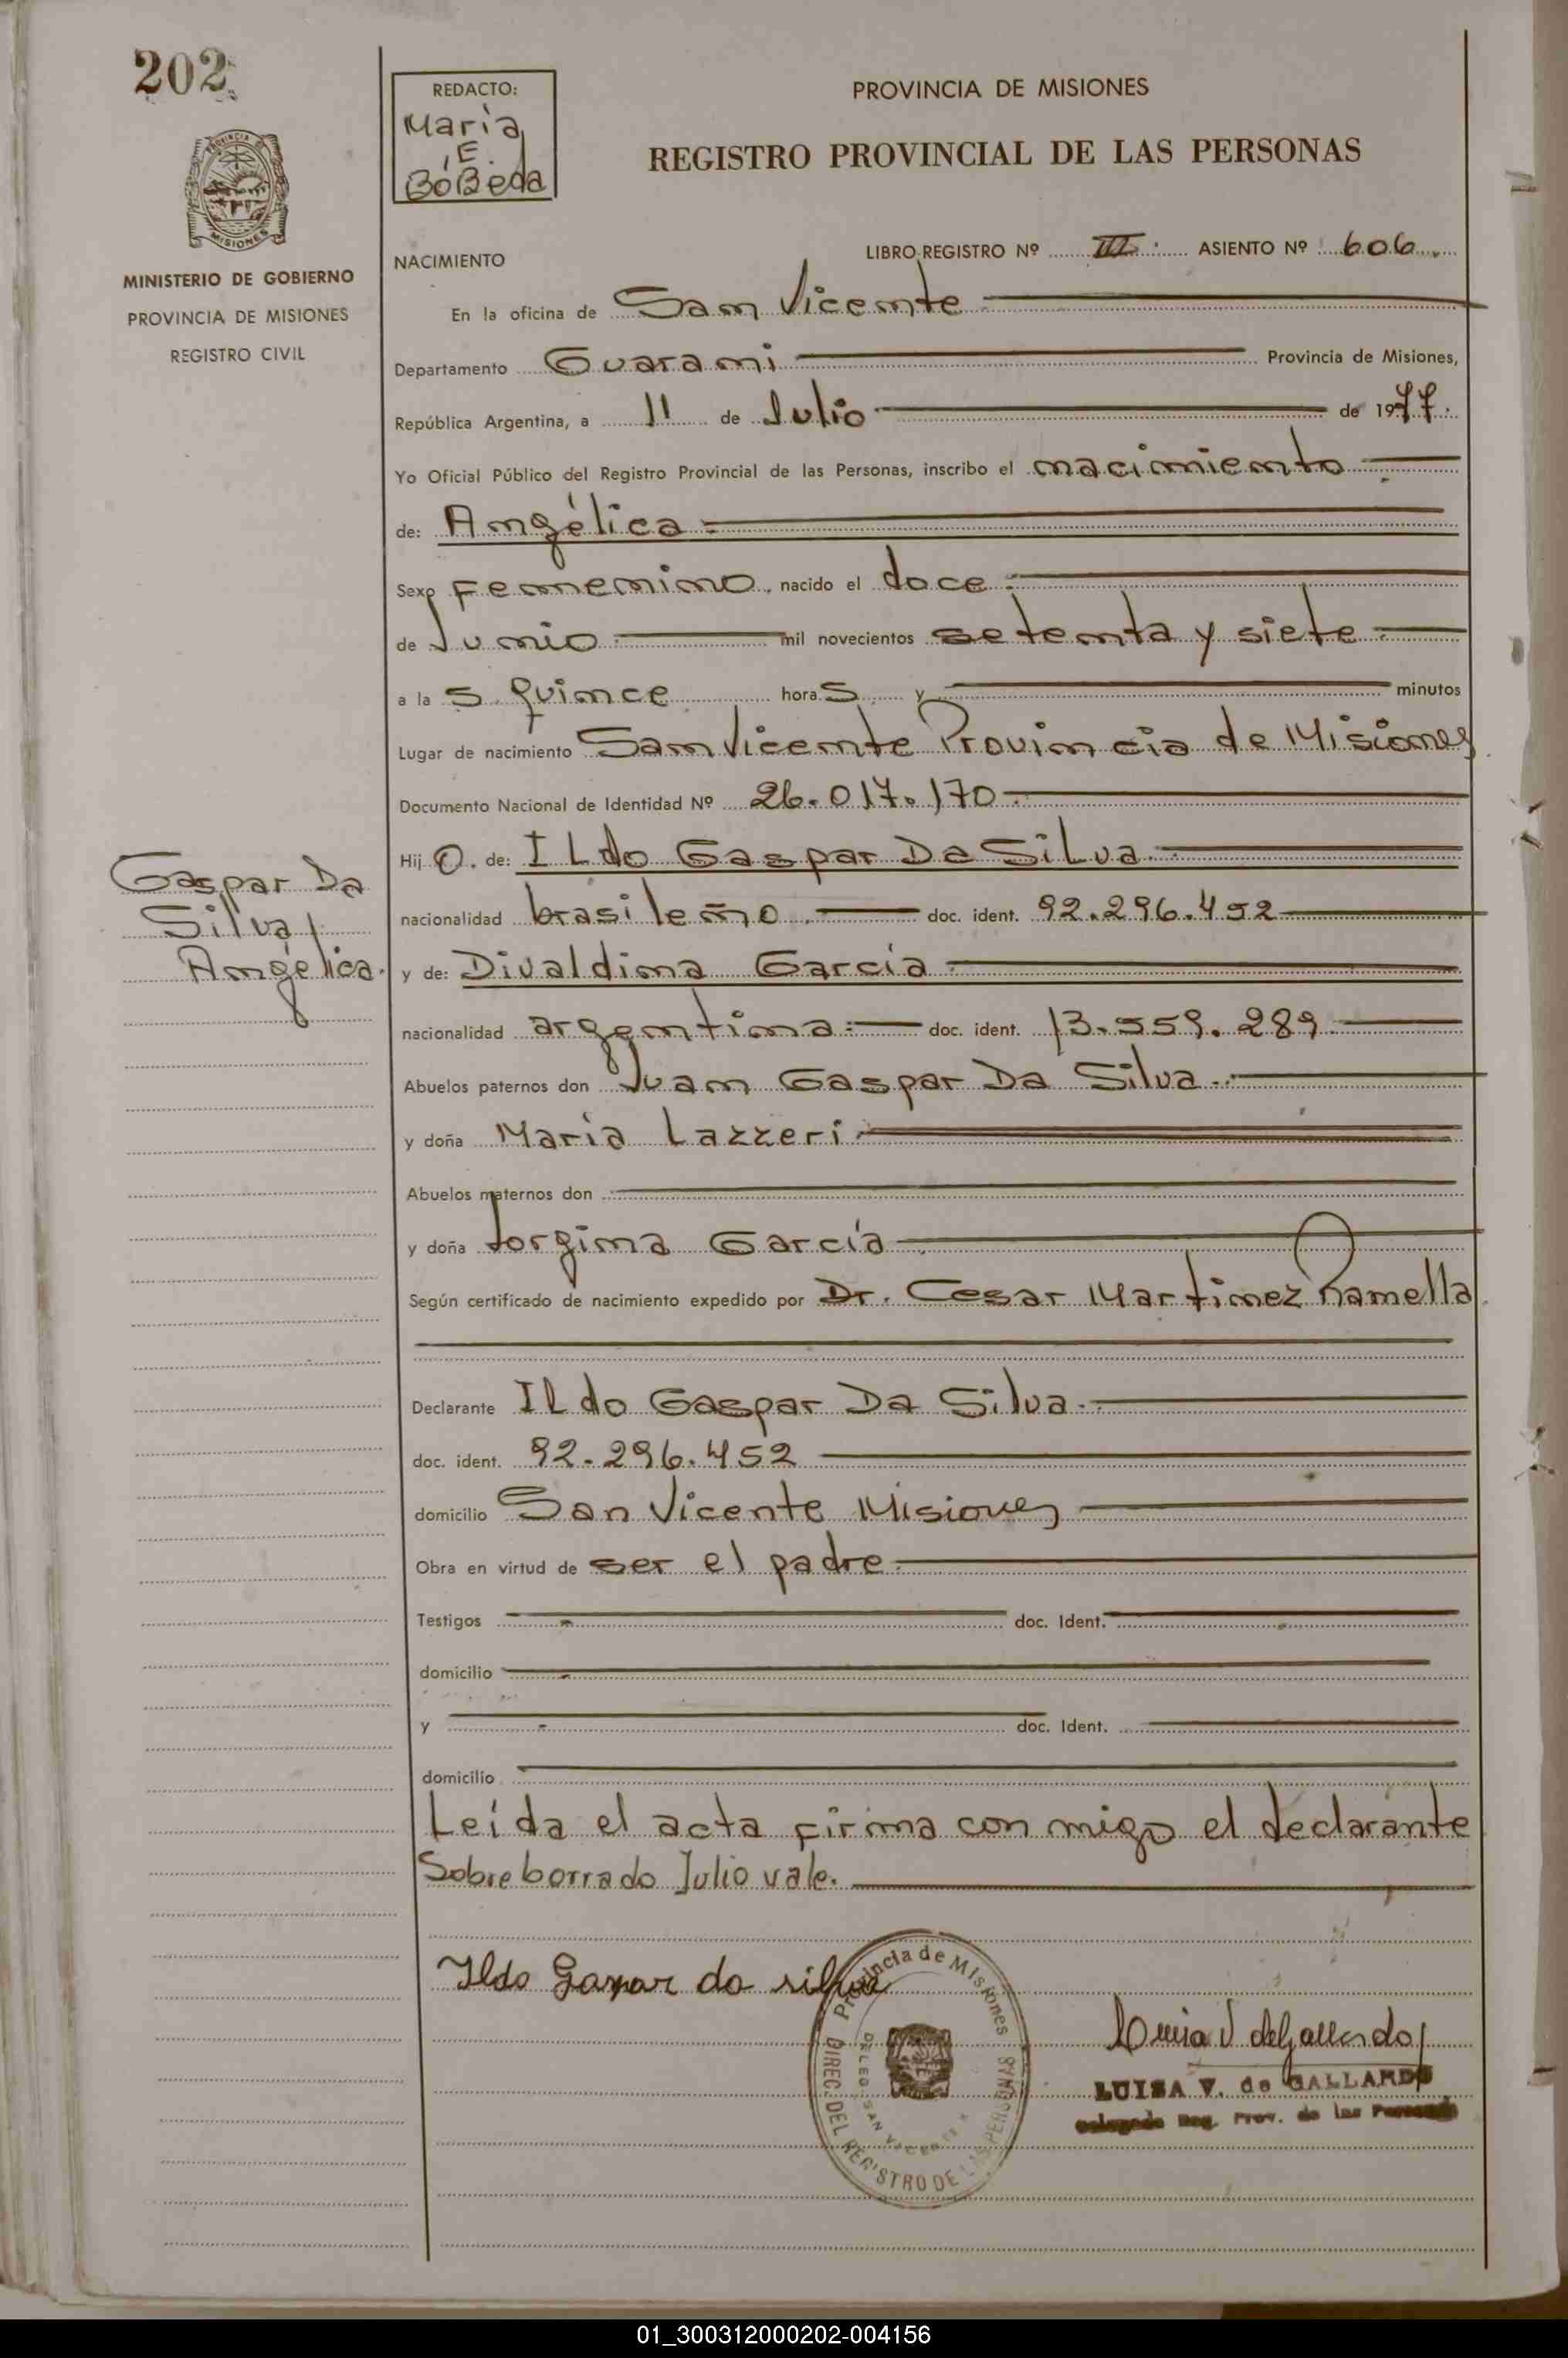 202
PROVINCIA DE MISIONES
REGISTRO PROVINCIAL DE LAS PERSONAS
REDACTO:
María
E.
BóBeda
PROVINCIA
MISIONES
MINISTERIO DE GOBIERNO
PROVINCIA DE MISIONES
REGISTRO CIVIL
NACIMIENTO
LIBRO REGISTRO Nº III. ASIENTO Nº 606.
En la oficina de San Vicente
Departamento Guarani Provincia de Misiones,
República Argentina, a 11 de Julio de 1977.
Yo Oficial Público del Registro Provincial de las Personas, inscribo el nacimiento
de: Angélica
Sexo Femenino, nacido el doce
de Junio mil novecientos setenta y siete
a las quince horas y minutos
Lugar de nacimiento San Vicente Provincia de Misiones
Documento Nacional de Identidad Nº 26.017.170
Hijo. de: ILdo Gaspar Da SiLva
nacionalidad brasileño doc. ident. 92.296.452
y de: Divaldina García
nacionalidad argentina doc. ident. 13.559.289
Abuelos paternos don Juan Gaspar Da Silva
y doña María Lazzeri
Abuelos maternos don
y doña Jorgina García
Según certificado de nacimiento expedido por Dr. Cesar Martinez Ramella
Declarante ILdo Gaspar Da Silva
doc. ident. 92.296.452
domicilio San Vicente Misiones
Obra en virtud de ser el padre
Testigos doc. Ident.
domicilio
y doc. Ident.
domicilio
Leída el acta firma con migo el declarante
Sobre borrado Julio vale.
Gaspar Da
Silva
Angélica.
Ildo Gaspar da silva
Provincia de Misiones
DIREC. DEL REGISTRO DE LAS PERSONAS
DELEG. SAN VICENTE
Luisa V de Gallardo
LUISA V. de GALLARDO
Delegada Reg. Prov. de las Personas
01_300312000202-004156